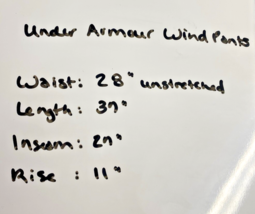 Under Armour Wind Pants
Waist: 28" unstretched
Length: 39"
Inseam: 29"
Rise : 11"